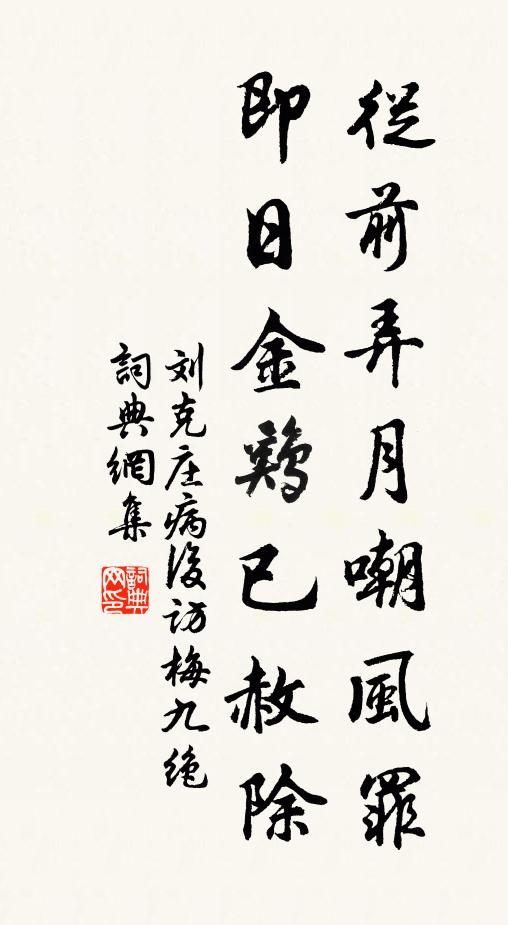 從前弄月嘲風罪
即日金鷄已赦除
刘克庄病後访梅九绝
詞典網集
詞典网印